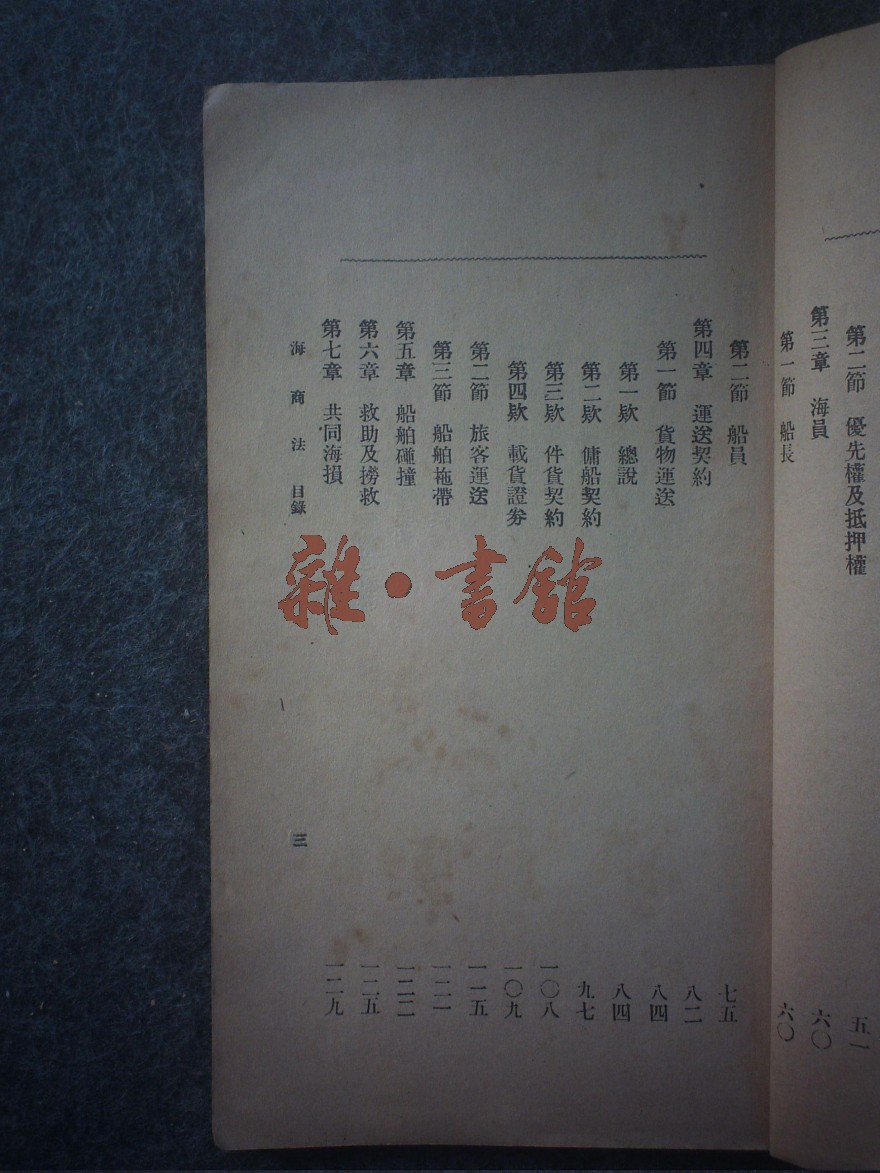 第二節 優先權及抵押權 五一
第三章 海員 六〇
第一節 船長 六〇
第二節 船員 七五
第四章 運送契約 八二
第一節 貨物運送 八四
第一欵 總說 八四
第二欵 傭船契約 九七
第三欵 件貨契約 一〇八
第四欵 載貨證券 一〇九
第二節 旅客運送 一一五
第三節 船舶拖帶 一二一
第五章 船舶碰撞 一二二
第六章 救助及撈救 一二五
第七章 共同海損 一二九
海商法 目錄 三
雜·書館